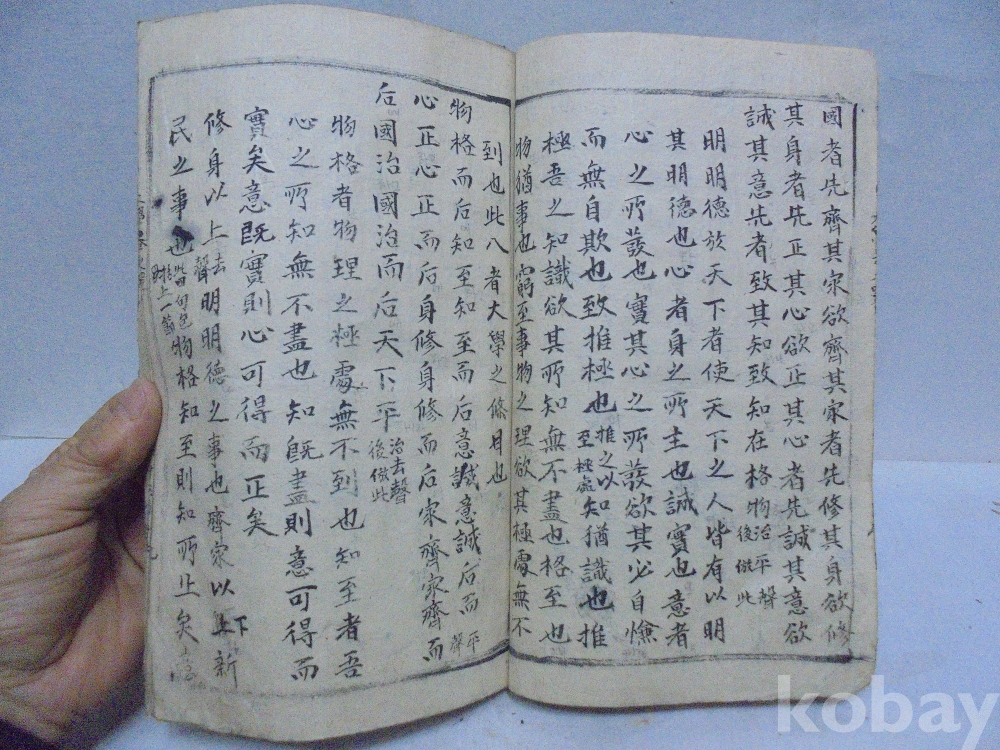 國者先齊其家欲齊其家者先修其身欲修
其身者先正其心欲正其心者先誠其意欲
誠其意先者致其知致知在格物治平聲後倣此
明明德於天下者使天下之人皆有以明
其明德也心者身之所主也誠實也意者
心之所發也實其心之所發欲其必自慊
而無自欺也致推極也推之以至極處知猶識也推
極吾之知識欲其所知無不盡也格至也
物猶事也窮至事物之理欲其極處無不
到也此八者大學之條目也
物格而后知至知至而后意誠意誠后而平聲
心正心正而后身修身修而后家齊家齊而
后國治國治而后天下平治去聲後倣此
物格者物理之極處無不到也知至者吾
心之所知無不盡也知旣盡則意可得而
實矣意旣實則心可得而正矣
修身以上去聲明明德之事也齊家以下新
民之事也物格知至則知所止矣
kobay